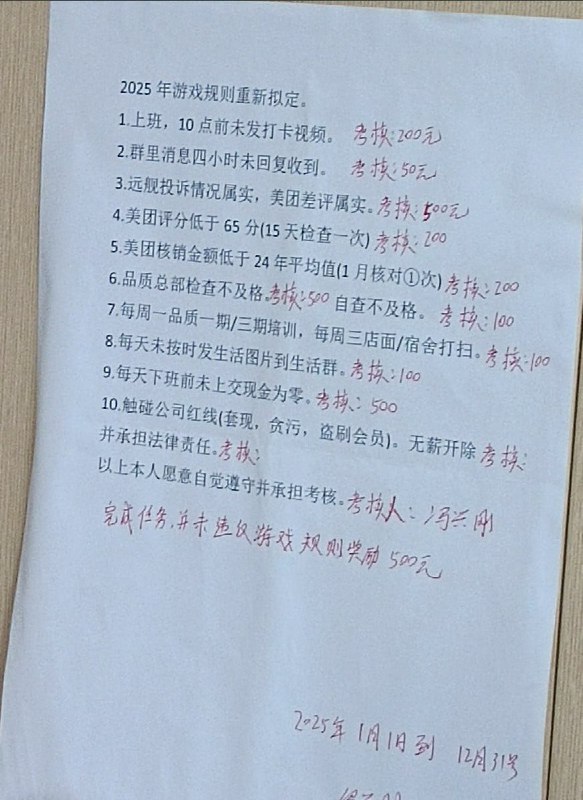 2025年游戏规则重新拟定。
1.上班，10点前未发打卡视频。 考核：200元
2.群里消息四小时未回复收到。 考核：50元
3.远舰投诉情况属实，美团差评属实。考核：500元
4.美团评分低于65分(15天检查一次) 考核：200
5.美团核销金额低于24年平均值(1月核对①次) 考核：200
6.品质总部检查不及格。考核：500 自查不及格。 考核：100
7.每周一品质一期/三期培训，每周三店面/宿舍打扫。考核：100
8.每天未按时发生活图片到生活群。考核：100
9.每天下班前未上交现金为零。考核：500
10.触碰公司红线(套现，贪污，盗刷会员)。无薪开除 考核：
并承担法律责任。考核：
以上本人愿意自觉遵守并承担考核。考核人：冯兴刚
完成任务，并未违反游戏规则奖励500元
2025年1月1日到12月31号